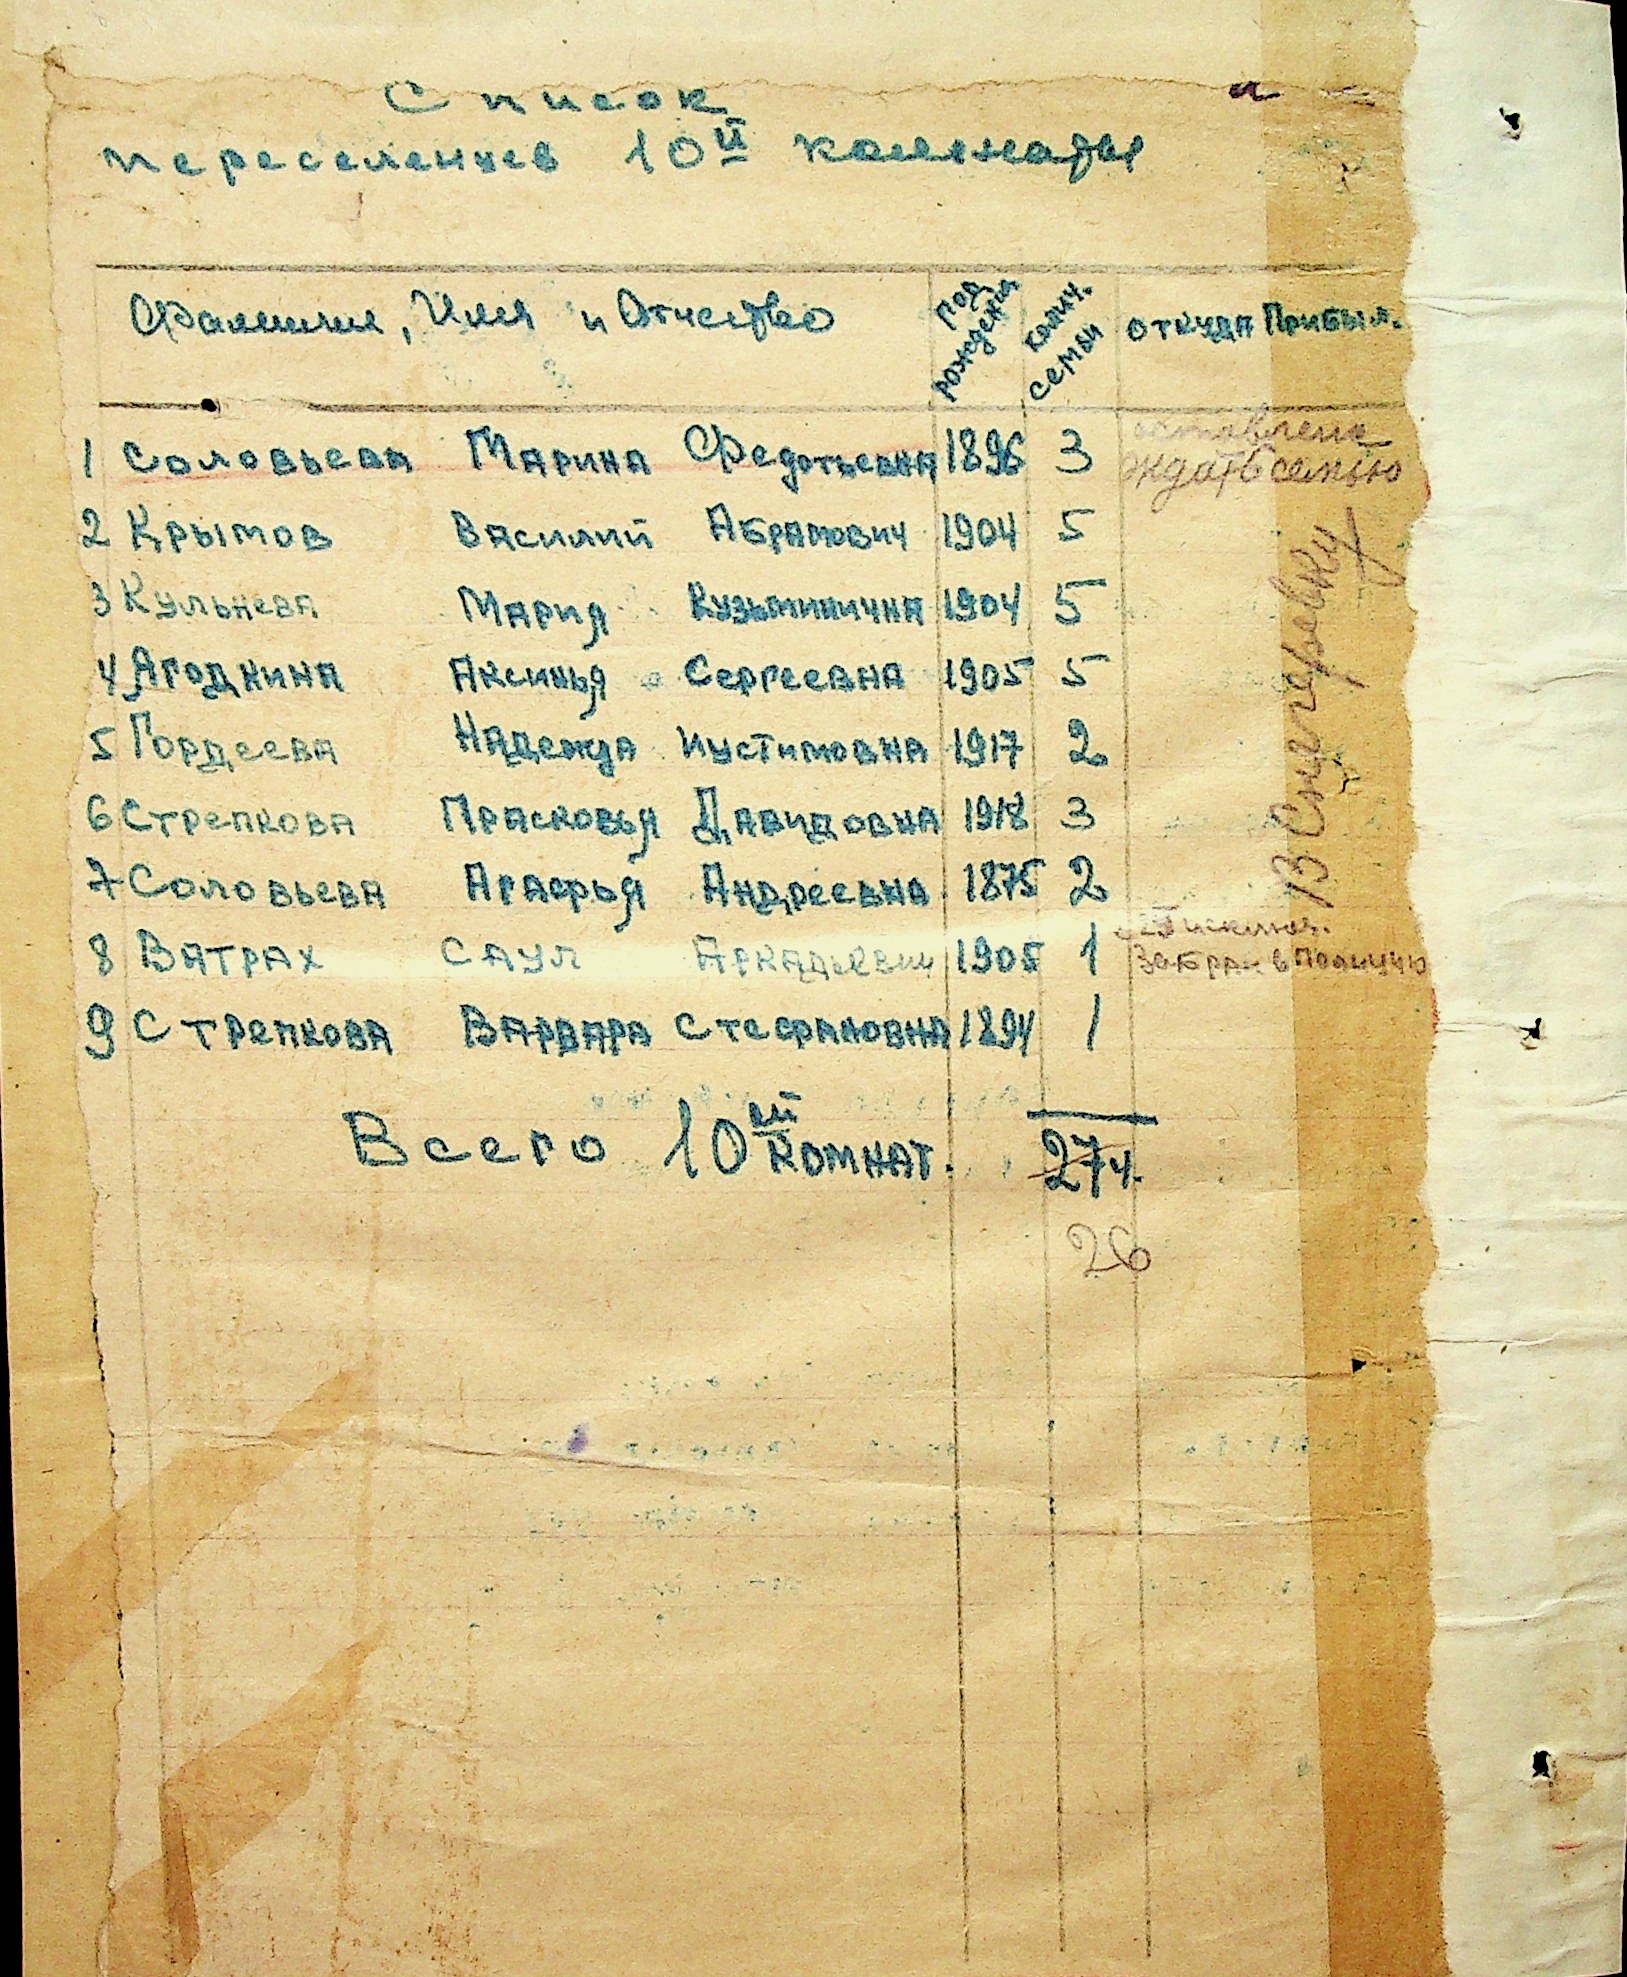 Список
переселенцев 10й комнаты
Фамилия, Имя и Отчество Год рождения колич. семьи откуда Прибыл.
1 Соловьева Марина Федотьевна 1896 3 оставлена ждать семью
2 Крымов Василий Абрамович 1904 5
3 Кульнева Мария Кузьминична 1904 5
4 Ягодкина Аксинья Сергеевна 1905 5
5 Гордеева Надежда Иустимовна 1917 2
6 Стрепкова Прасковья Давидовна 1918 3
7 Соловьева Агафья Андреевна 1875 2
8 Ватрах Саул Аркадьевич 1905 1 забран в полицию
9 Стрепкова Варвара Стефановна 1894 1
В Снегиревку
Всего 10й комнат. 27ч.
26